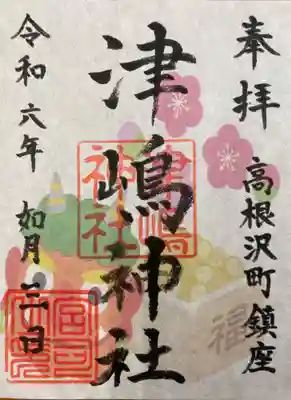 奉拝
高根沢町鎮座
津嶋神社
令和六年
如月三日
津嶋
神社
福